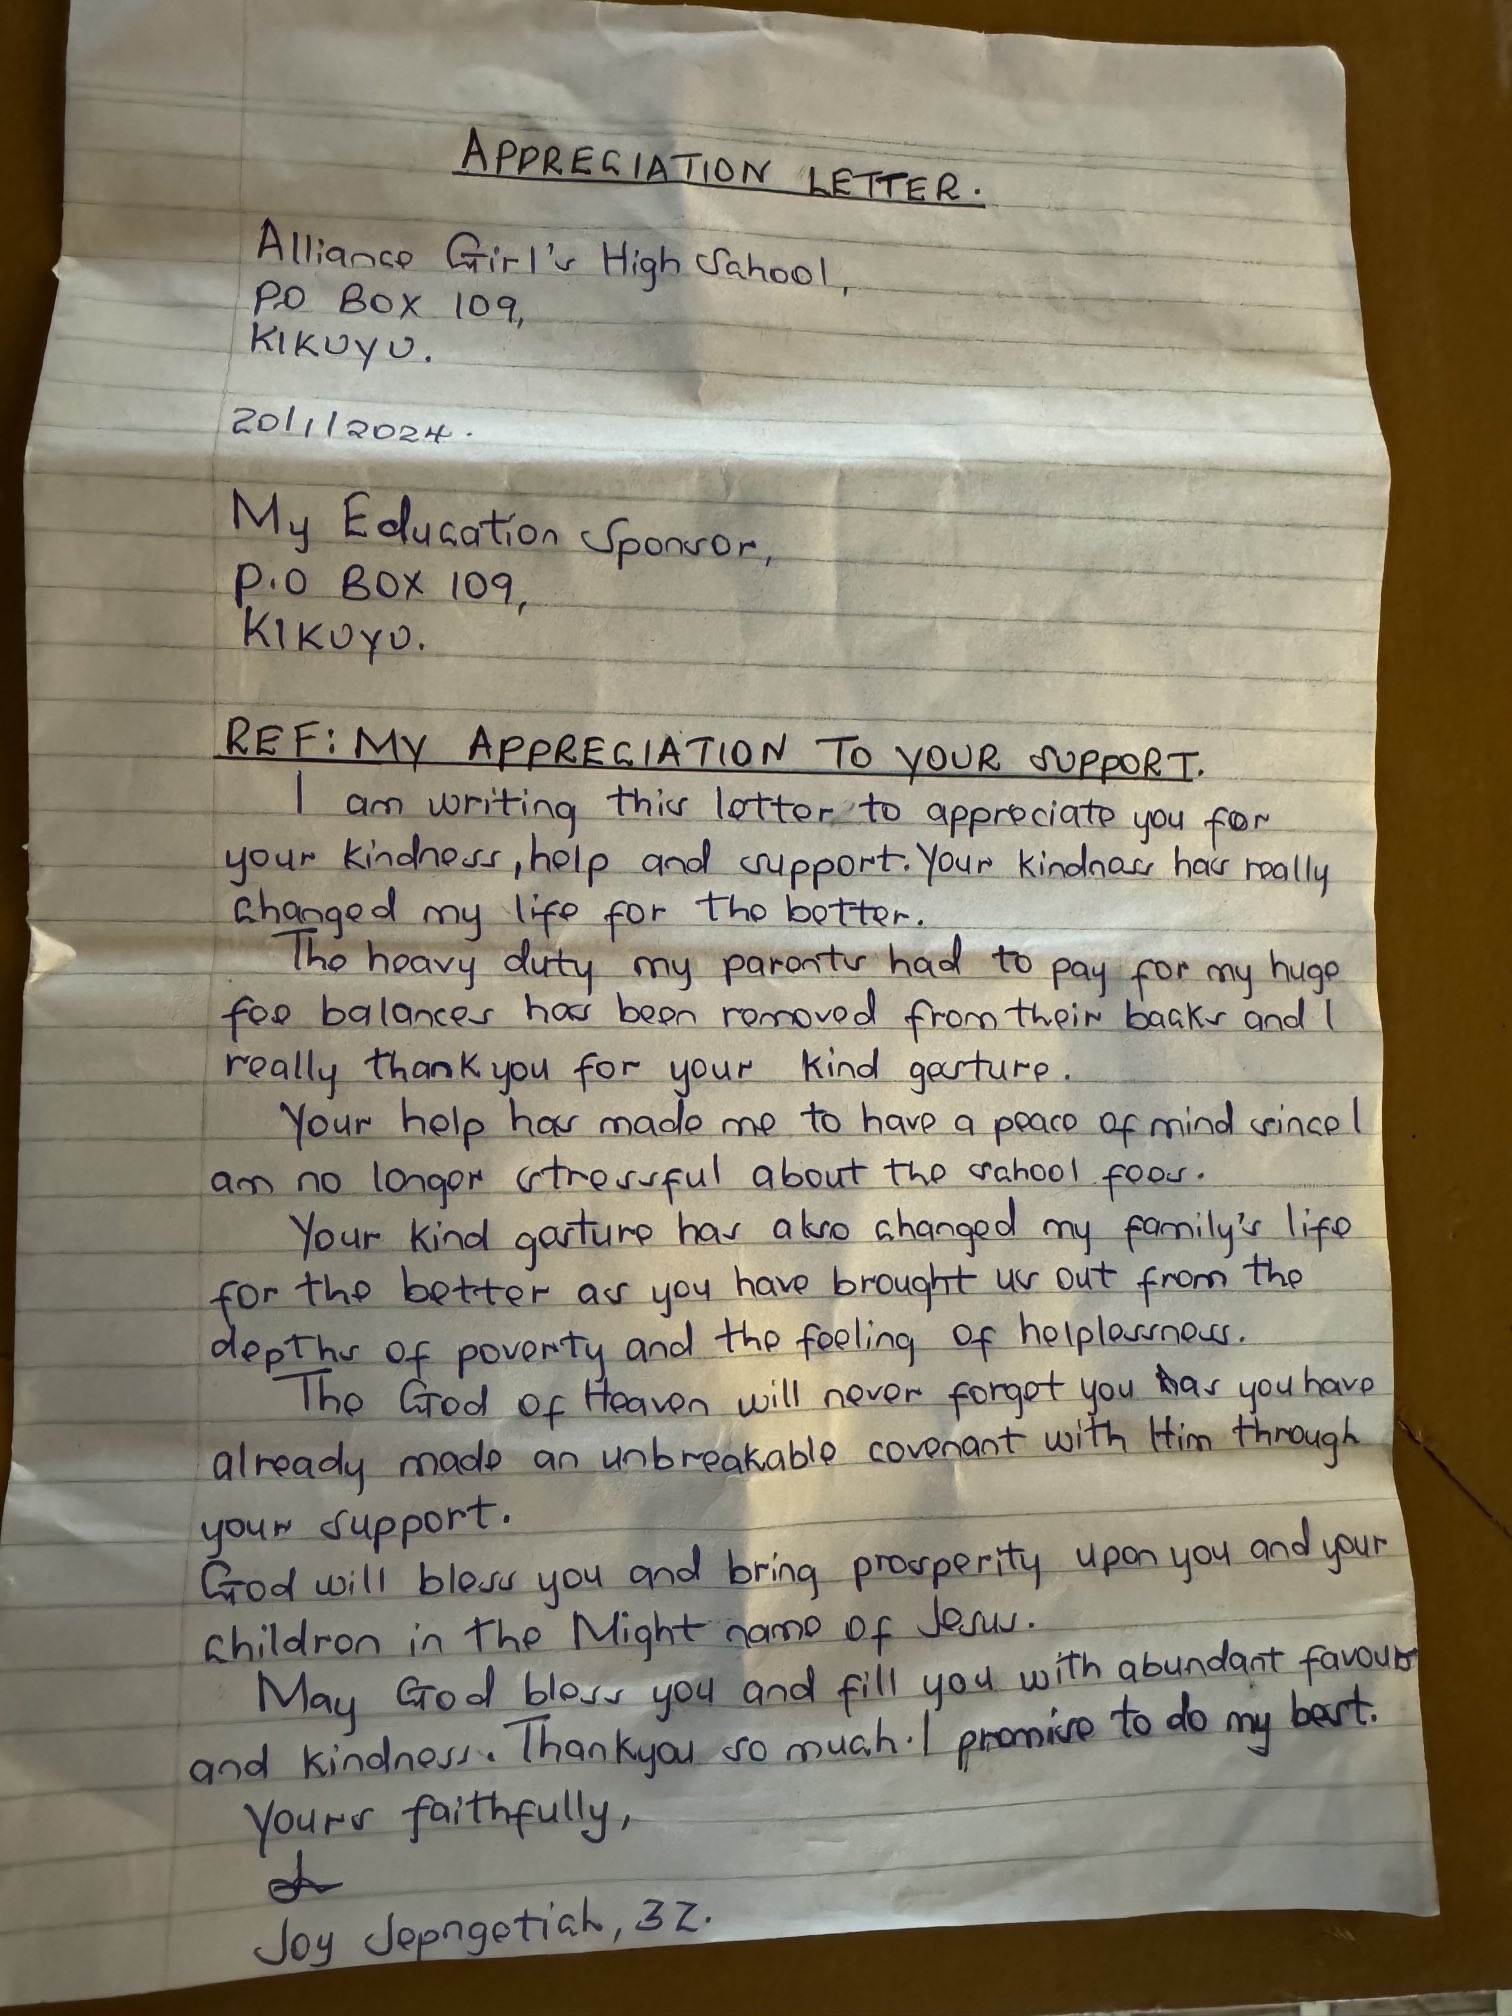 APPRECIATION LETTER.
Alliance Girl's High School,
P.O BOX 109,
KIKUYU.
20/1/2024.
My Education Sponsor,
P.O BOX 109,
KIKUYU.
REF: MY APPRECIATION TO YOUR SUPPORT.
I am writing this letter to appreciate you for
your kindness, help and support. Your kindness has really
changed my life for the better.
The heavy duty my parents had to pay for my huge
fee balances has been removed from their backs and I
really thank you for your kind gesture.
Your help has made me to have a peace of mind since I
am no longer stressful about the school fees.
Your kind gesture has also changed my family's life
for the better as you have brought us out from the
depths of poverty and the feeling of helplessness.
The God of Heaven will never forget you as you have
already made an unbreakable covenant with Him through
your support.
God will bless you and bring prosperity upon you and your
children in the Might name of Jesus.
May God bless you and fill you with abundant favour
and kindness. Thankyou so much. I promise to do my best.
Yours faithfully,
Joy Jepngetich, 3Z.